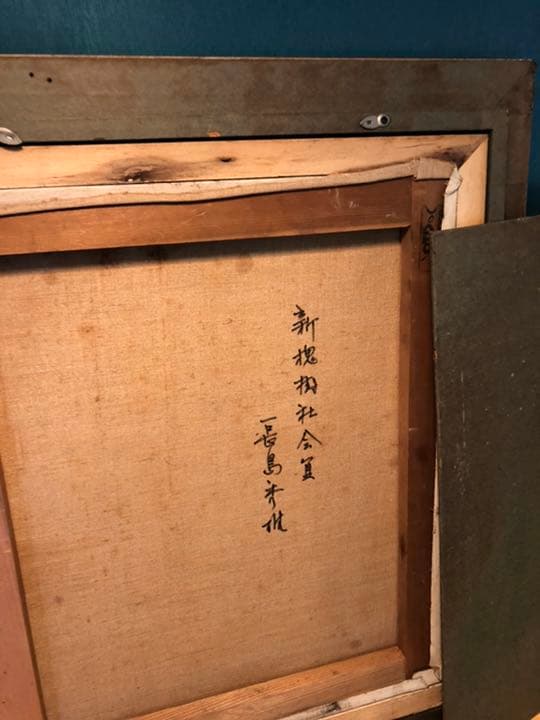 新槐樹社会員
長島秀雄